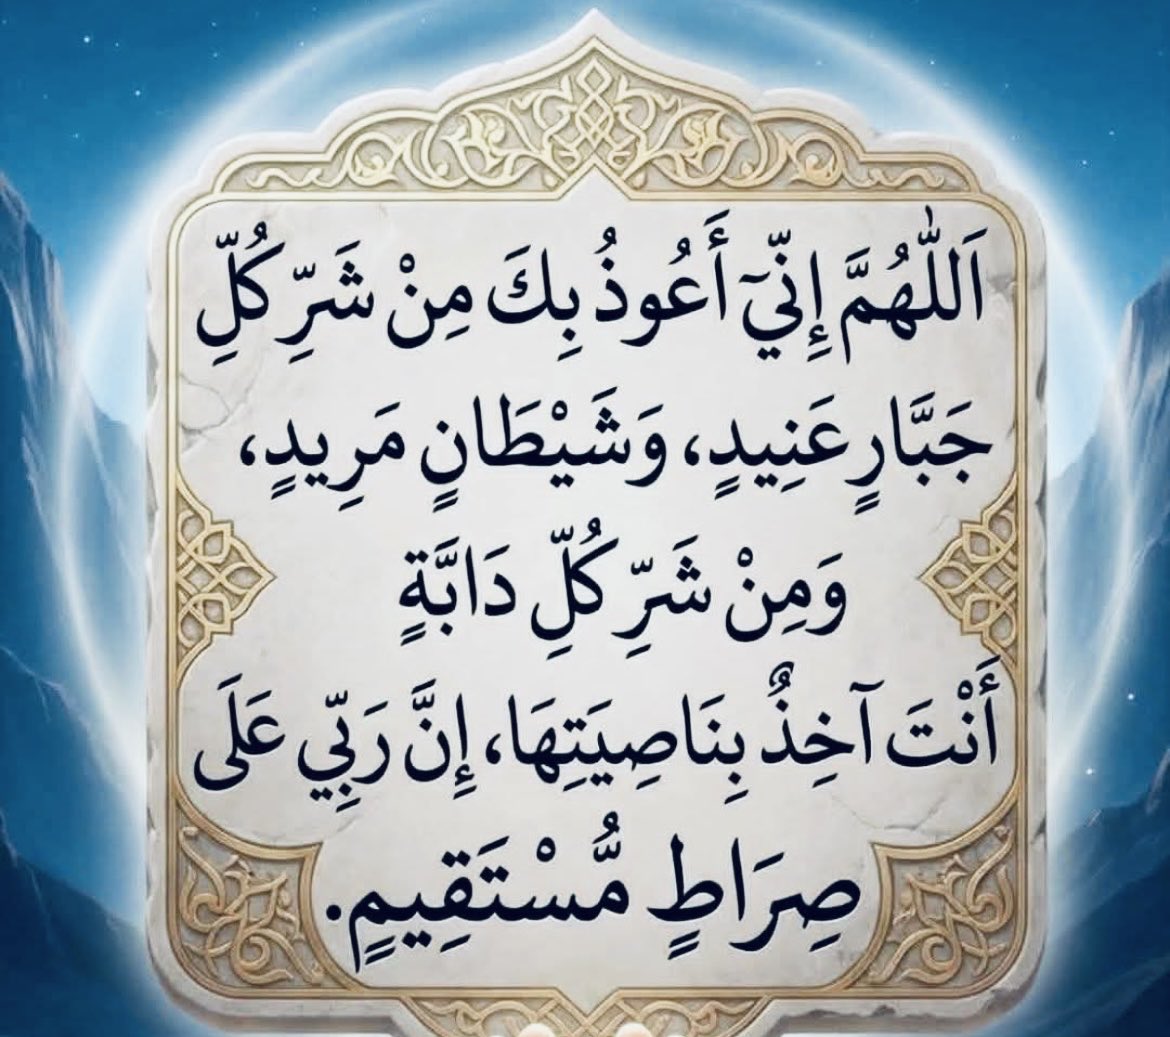 اَللّٰهُمَّ إِنِّيٓ أَعُوذُ بِكَ مِنْ شَرِّ كُلِّ
جَبَّارٍ عَنِيدٍ، وَشَيْطَانٍ مَرِيدٍ،
وَمِنْ شَرِّ كُلِّ دَابَّةٍ
أَنْتَ آخِذٌ بِنَاصِيَتِهَا، إِنَّ رَبِّي عَلَى
صِرَاطٍ مُّسْتَقِيمٍ.